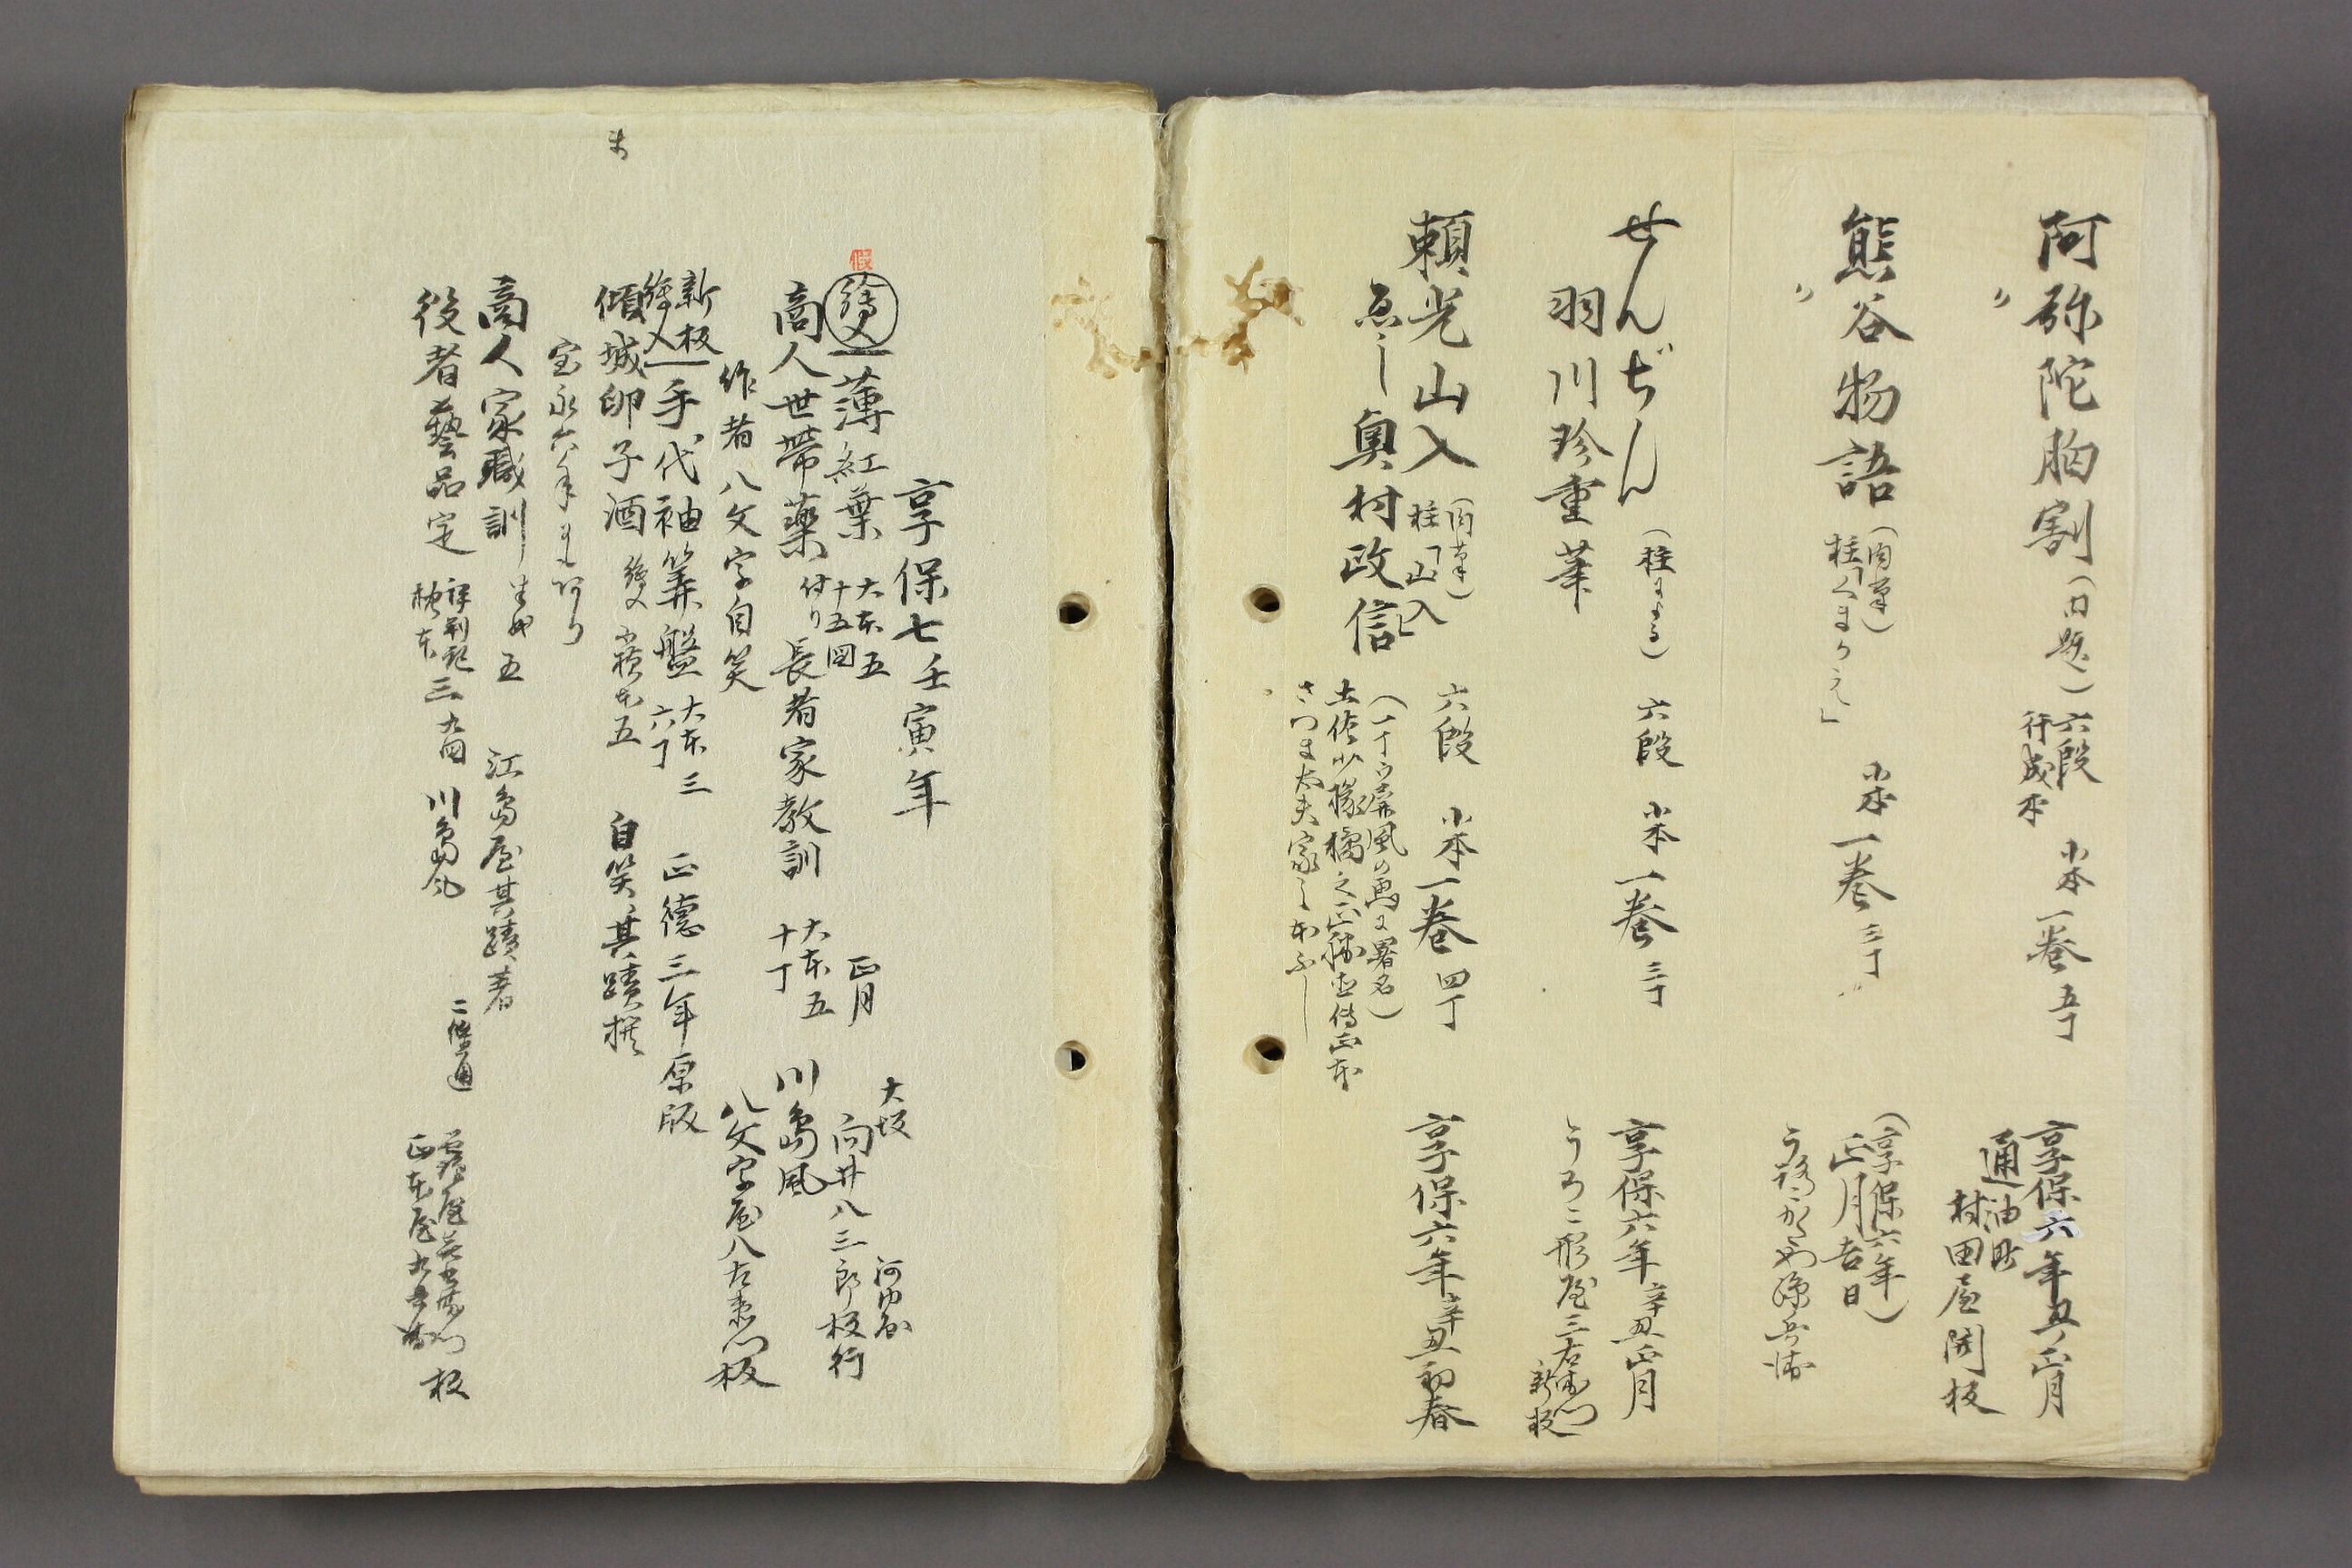 阿弥陀胸割(内題)六段
行成本
小本一巻五丁
享保六年丑ノ正月
通油町
村田屋開板
熊谷物語(内簽)
柱「くまかえ」
小本一巻三丁
(享保六年)
正月吉日
うろこかたや孫兵衛
せんぢん(柱による)六段 小本一巻三丁
享保六年辛丑正月
羽川珍重筆
うろこ形屋三右衛門
新板
頼光山入(内簽)
柱「山入」
六段 小本一巻四丁
享保六年辛丑初春
ゑし 奥村政信
(一丁ウ屏風の画に署名)
土佐少掾橘之正勝直伝正本
さつま太夫家之本ふし
享保七壬寅年
繪入 薄紅葉 大本五
十五図
正月
大坂
向井八三郎板行
商人世帯薬 付り 長者家教訓 大本五
十丁
川島風
作者八文字自笑
八文字屋八左衛門板
新板
繪入 手代袖算盤 大本三
六丁
正徳三年原版
傾城卵子酒 繪入 横本五
自笑、其蹟撰
宝永六年
商人家職訓 半紙 五 江島屋其蹟著
役者藝品定 評判記
横本 三
川島風
二條通
正本屋九兵衛
板